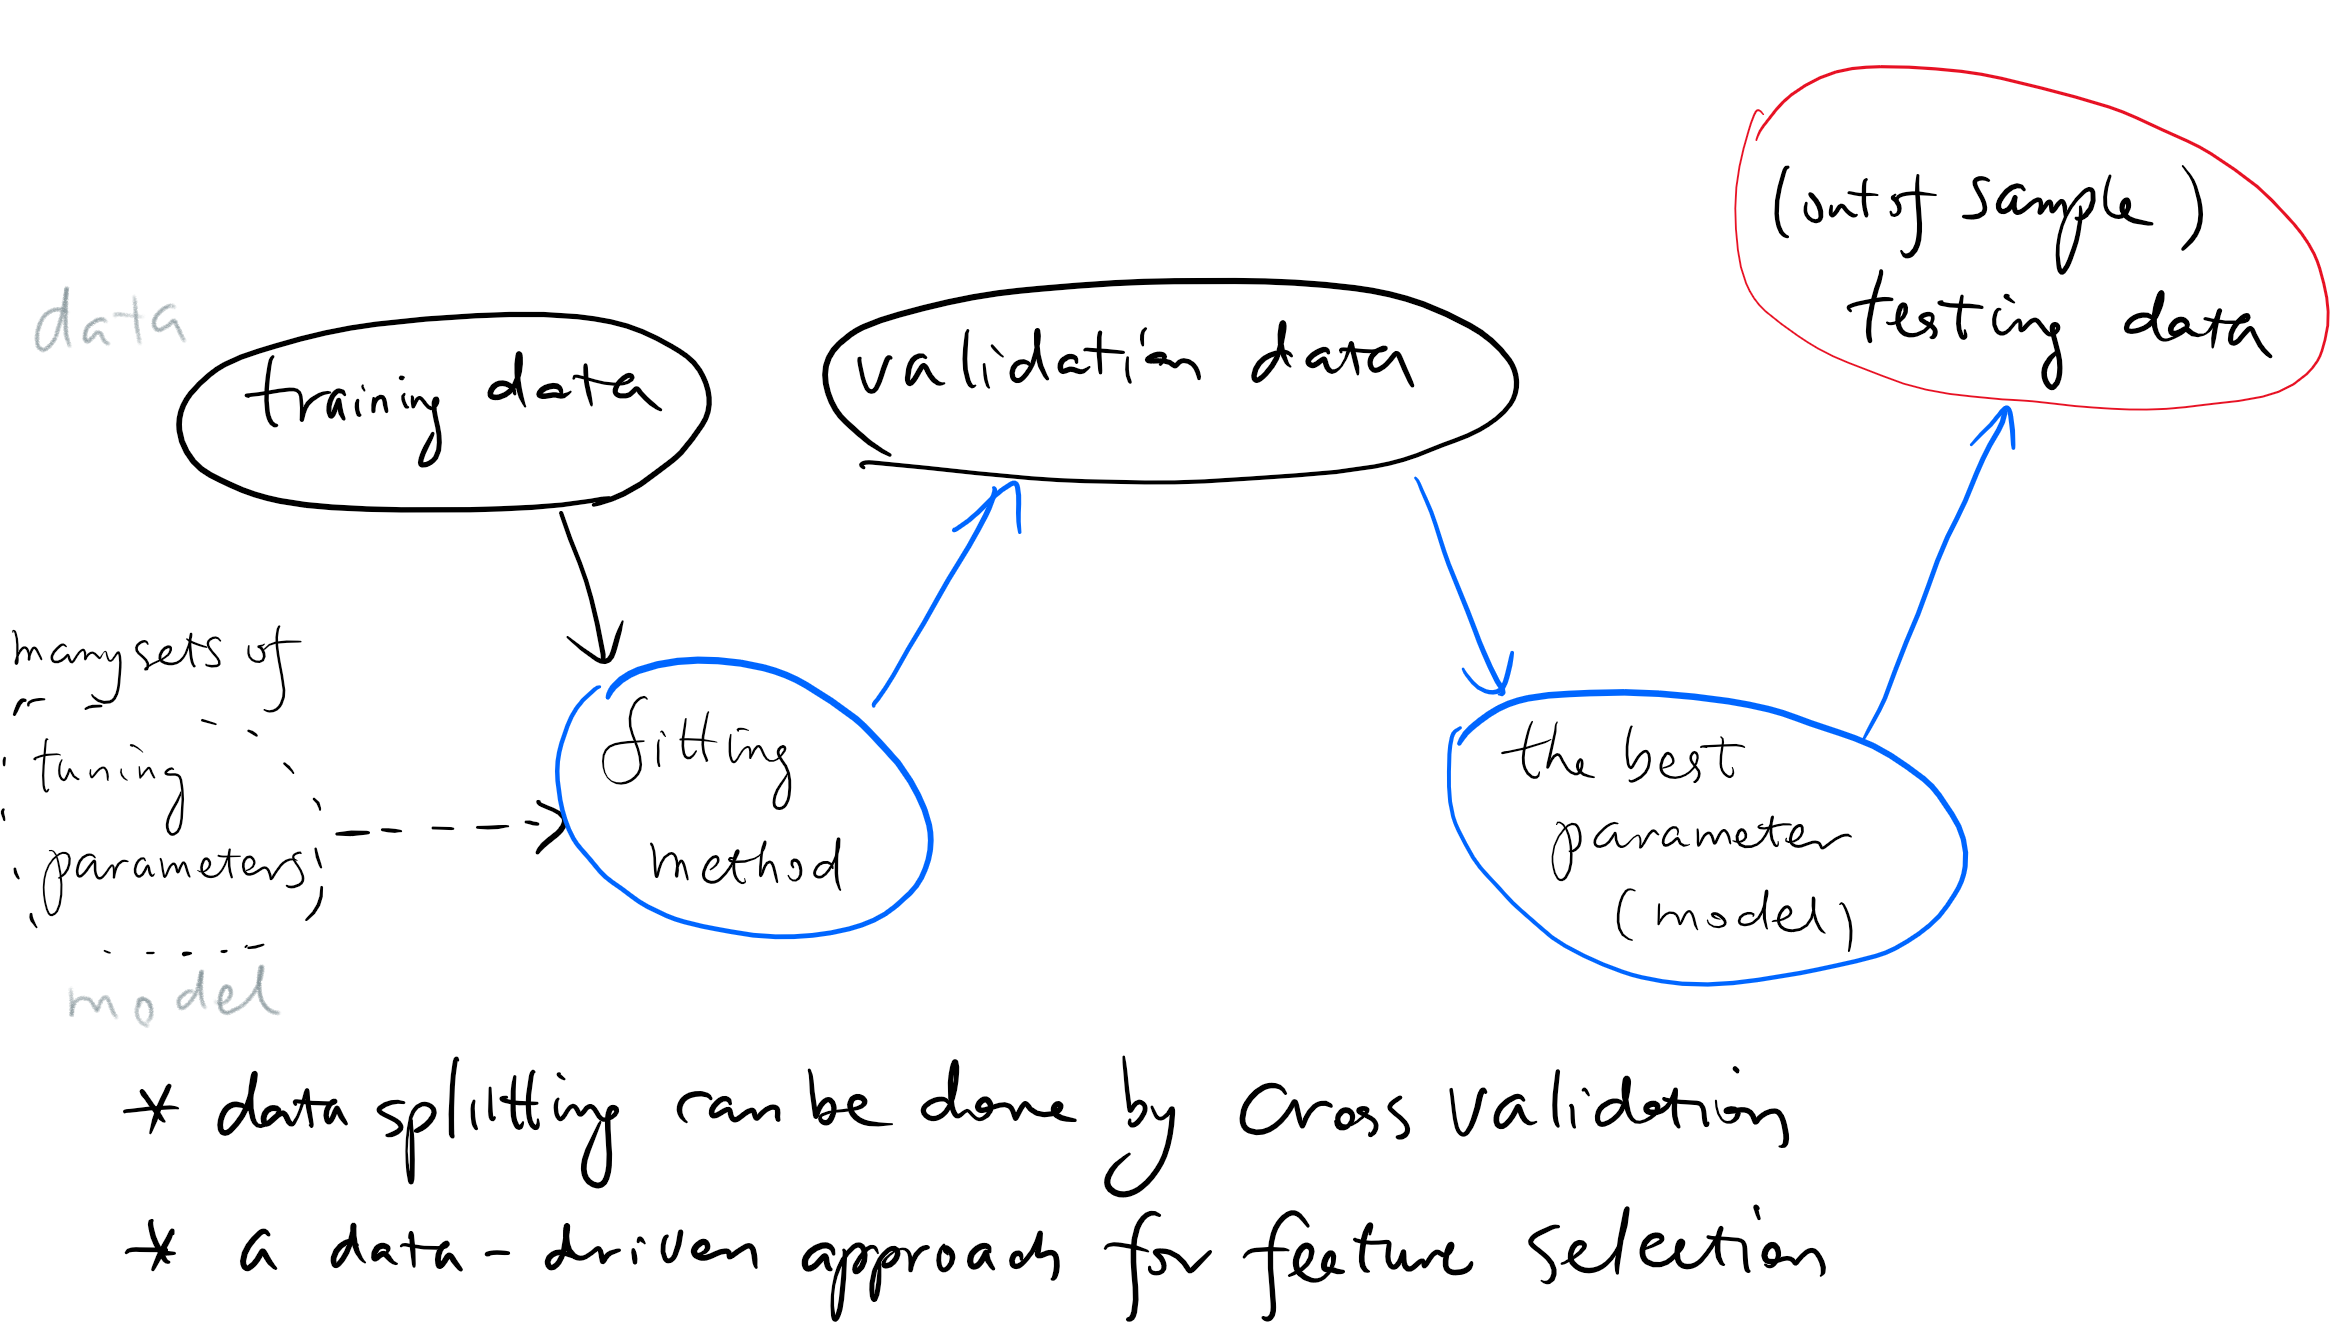 (out of sample)
testing data
data
training data
validation data
many sets of
tuning
parameters
fitting
method
the best
parameter
(model)
model
* data splitting can be done by cross validation
* a data-driven approach for feature selection